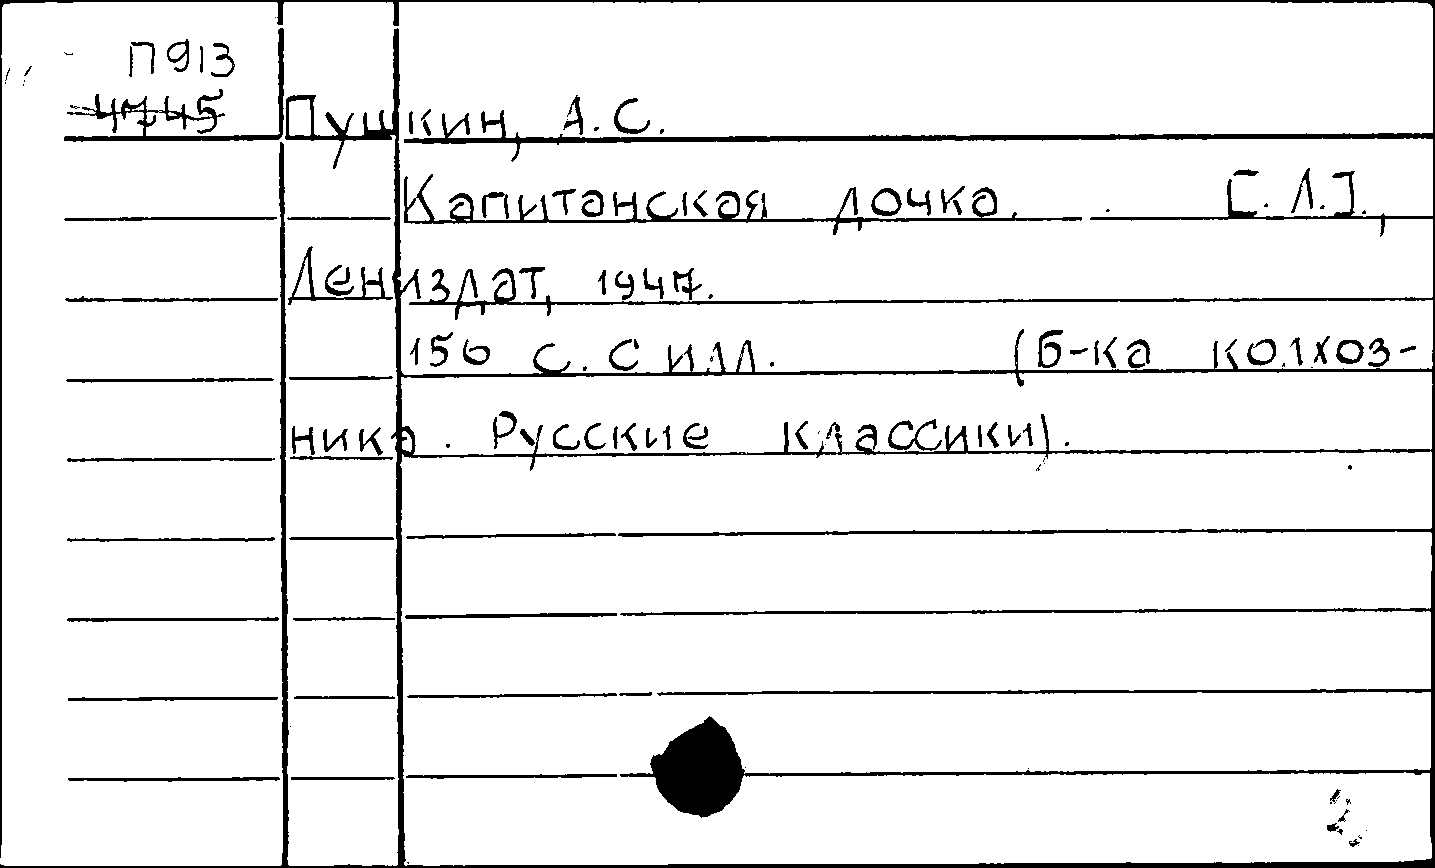 П913
4745
Пушкин, А.С.
Капитанская дочка. [.Л.].,
Лениздат, 1947.
156 с. с илл. (Б-ка колхоз-
ника. Русские классики).
2